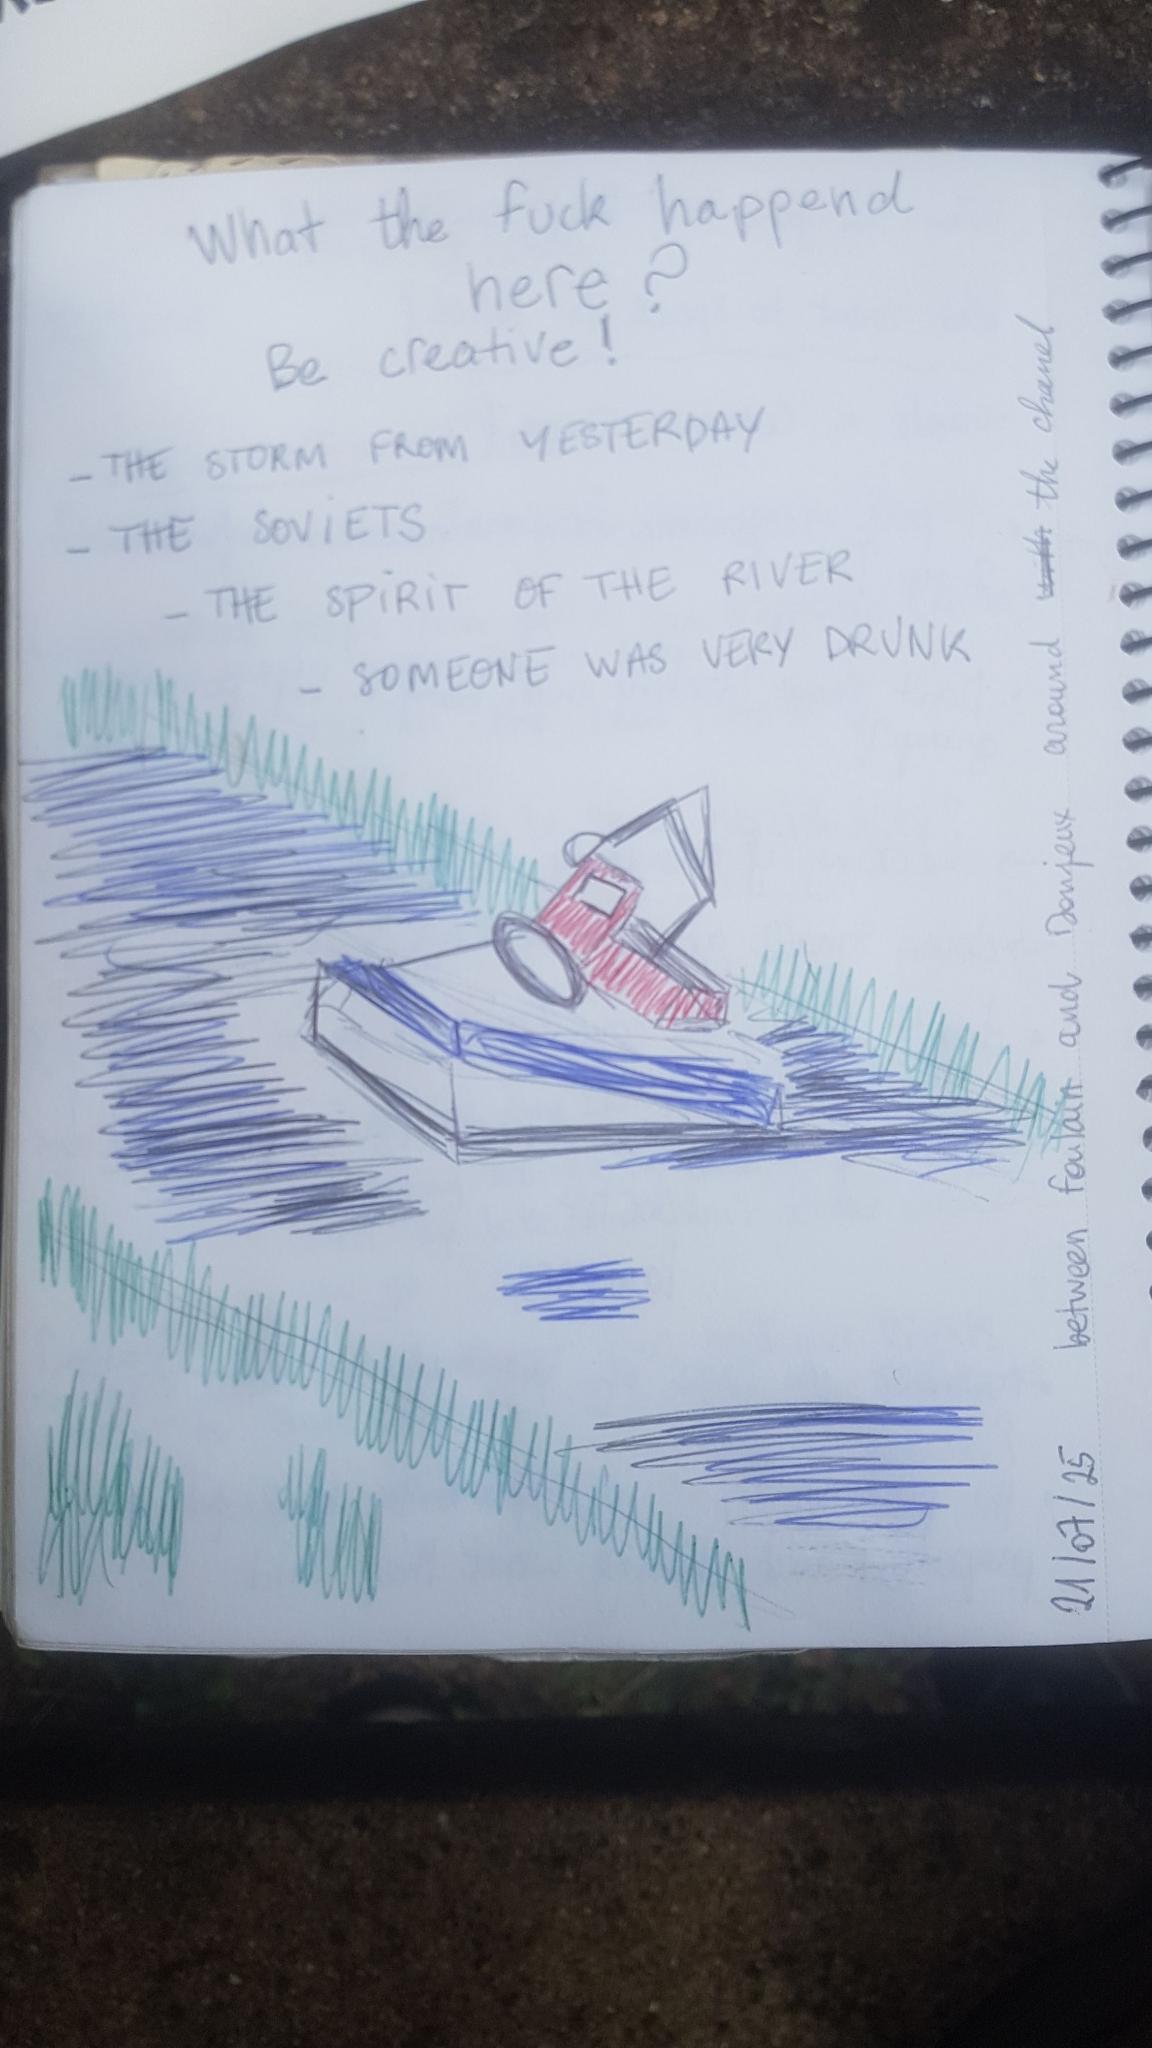 What the fuck happend
here?
Be creative!
- THE STORM FROM YESTERDAY
- THE SOVIETS
- THE SPIRIT OF THE RIVER
- SOMEONE WAS VERY DRUNK
21/07/25 between foulain and Donjeux around the chanel